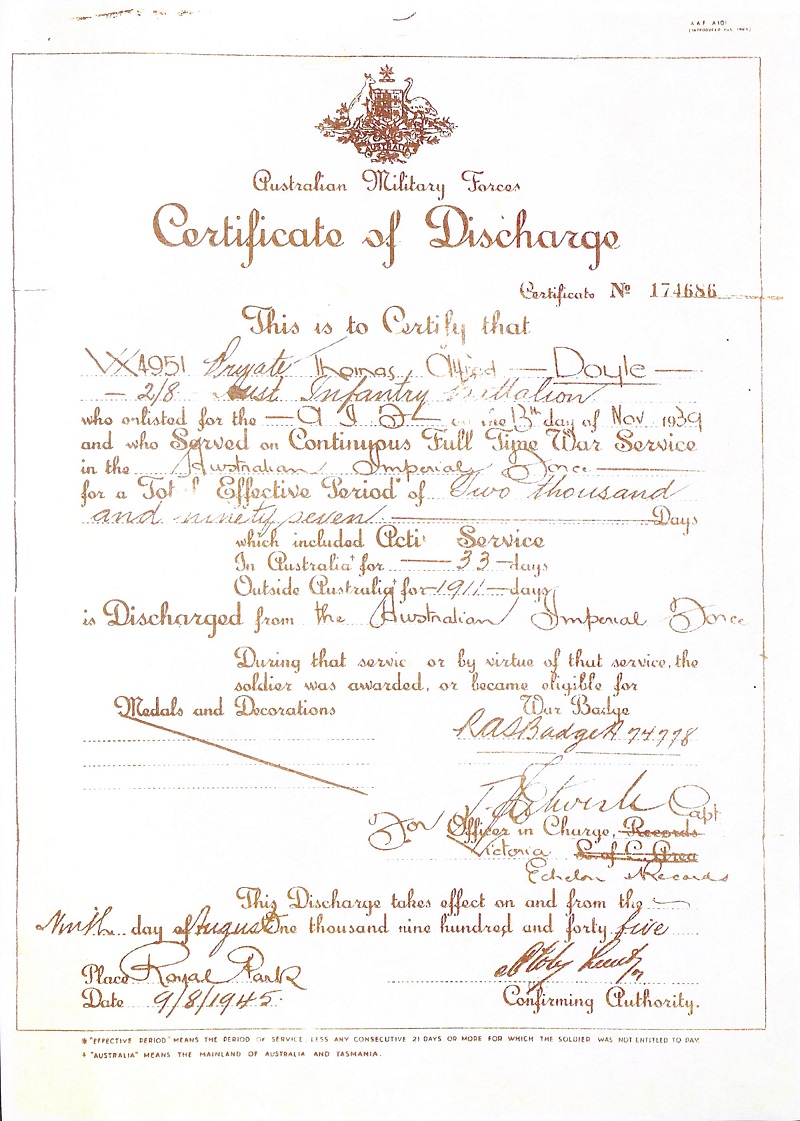 A.A.F. A101
AUSTRALIA
Australian Military Forces
Certificate of Discharge
Certificate Nº 174686
This is to Certify that
VX4951 Private Thomas Alfred Doyle
2/8 Aust Infantry Battalion
who enlisted for the A I F on the 13th day of Nov 1939
and who Served on Continuous Full Time War Service
in the Australian Imperial Force
for a Total Effective Period* of Two thousand
and ninety seven Days
which included Active Service
In Australia† for 33 days
Outside Australia† for 1911 days
is Discharged from the Australian Imperial Force
During that service or by virtue of that service, the
soldier was awarded, or became eligible for
Medals and Decorations War Badge
RAS Badge A 74778
Capt
For Officer in Charge, Records
Victoria L. of C. Area
Echelon & Records
This Discharge takes effect on and from the
Ninth day of August One thousand nine hundred and forty five
Place Royal Park
Date 9/8/1945. Confirming Authority.
* "EFFECTIVE PERIOD" MEANS THE PERIOD OF SERVICE, LESS ANY CONSECUTIVE 21 DAYS OR MORE FOR WHICH THE SOLDIER WAS NOT ENTITLED TO PAY.
† "AUSTRALIA" MEANS THE MAINLAND OF AUSTRALIA AND TASMANIA.